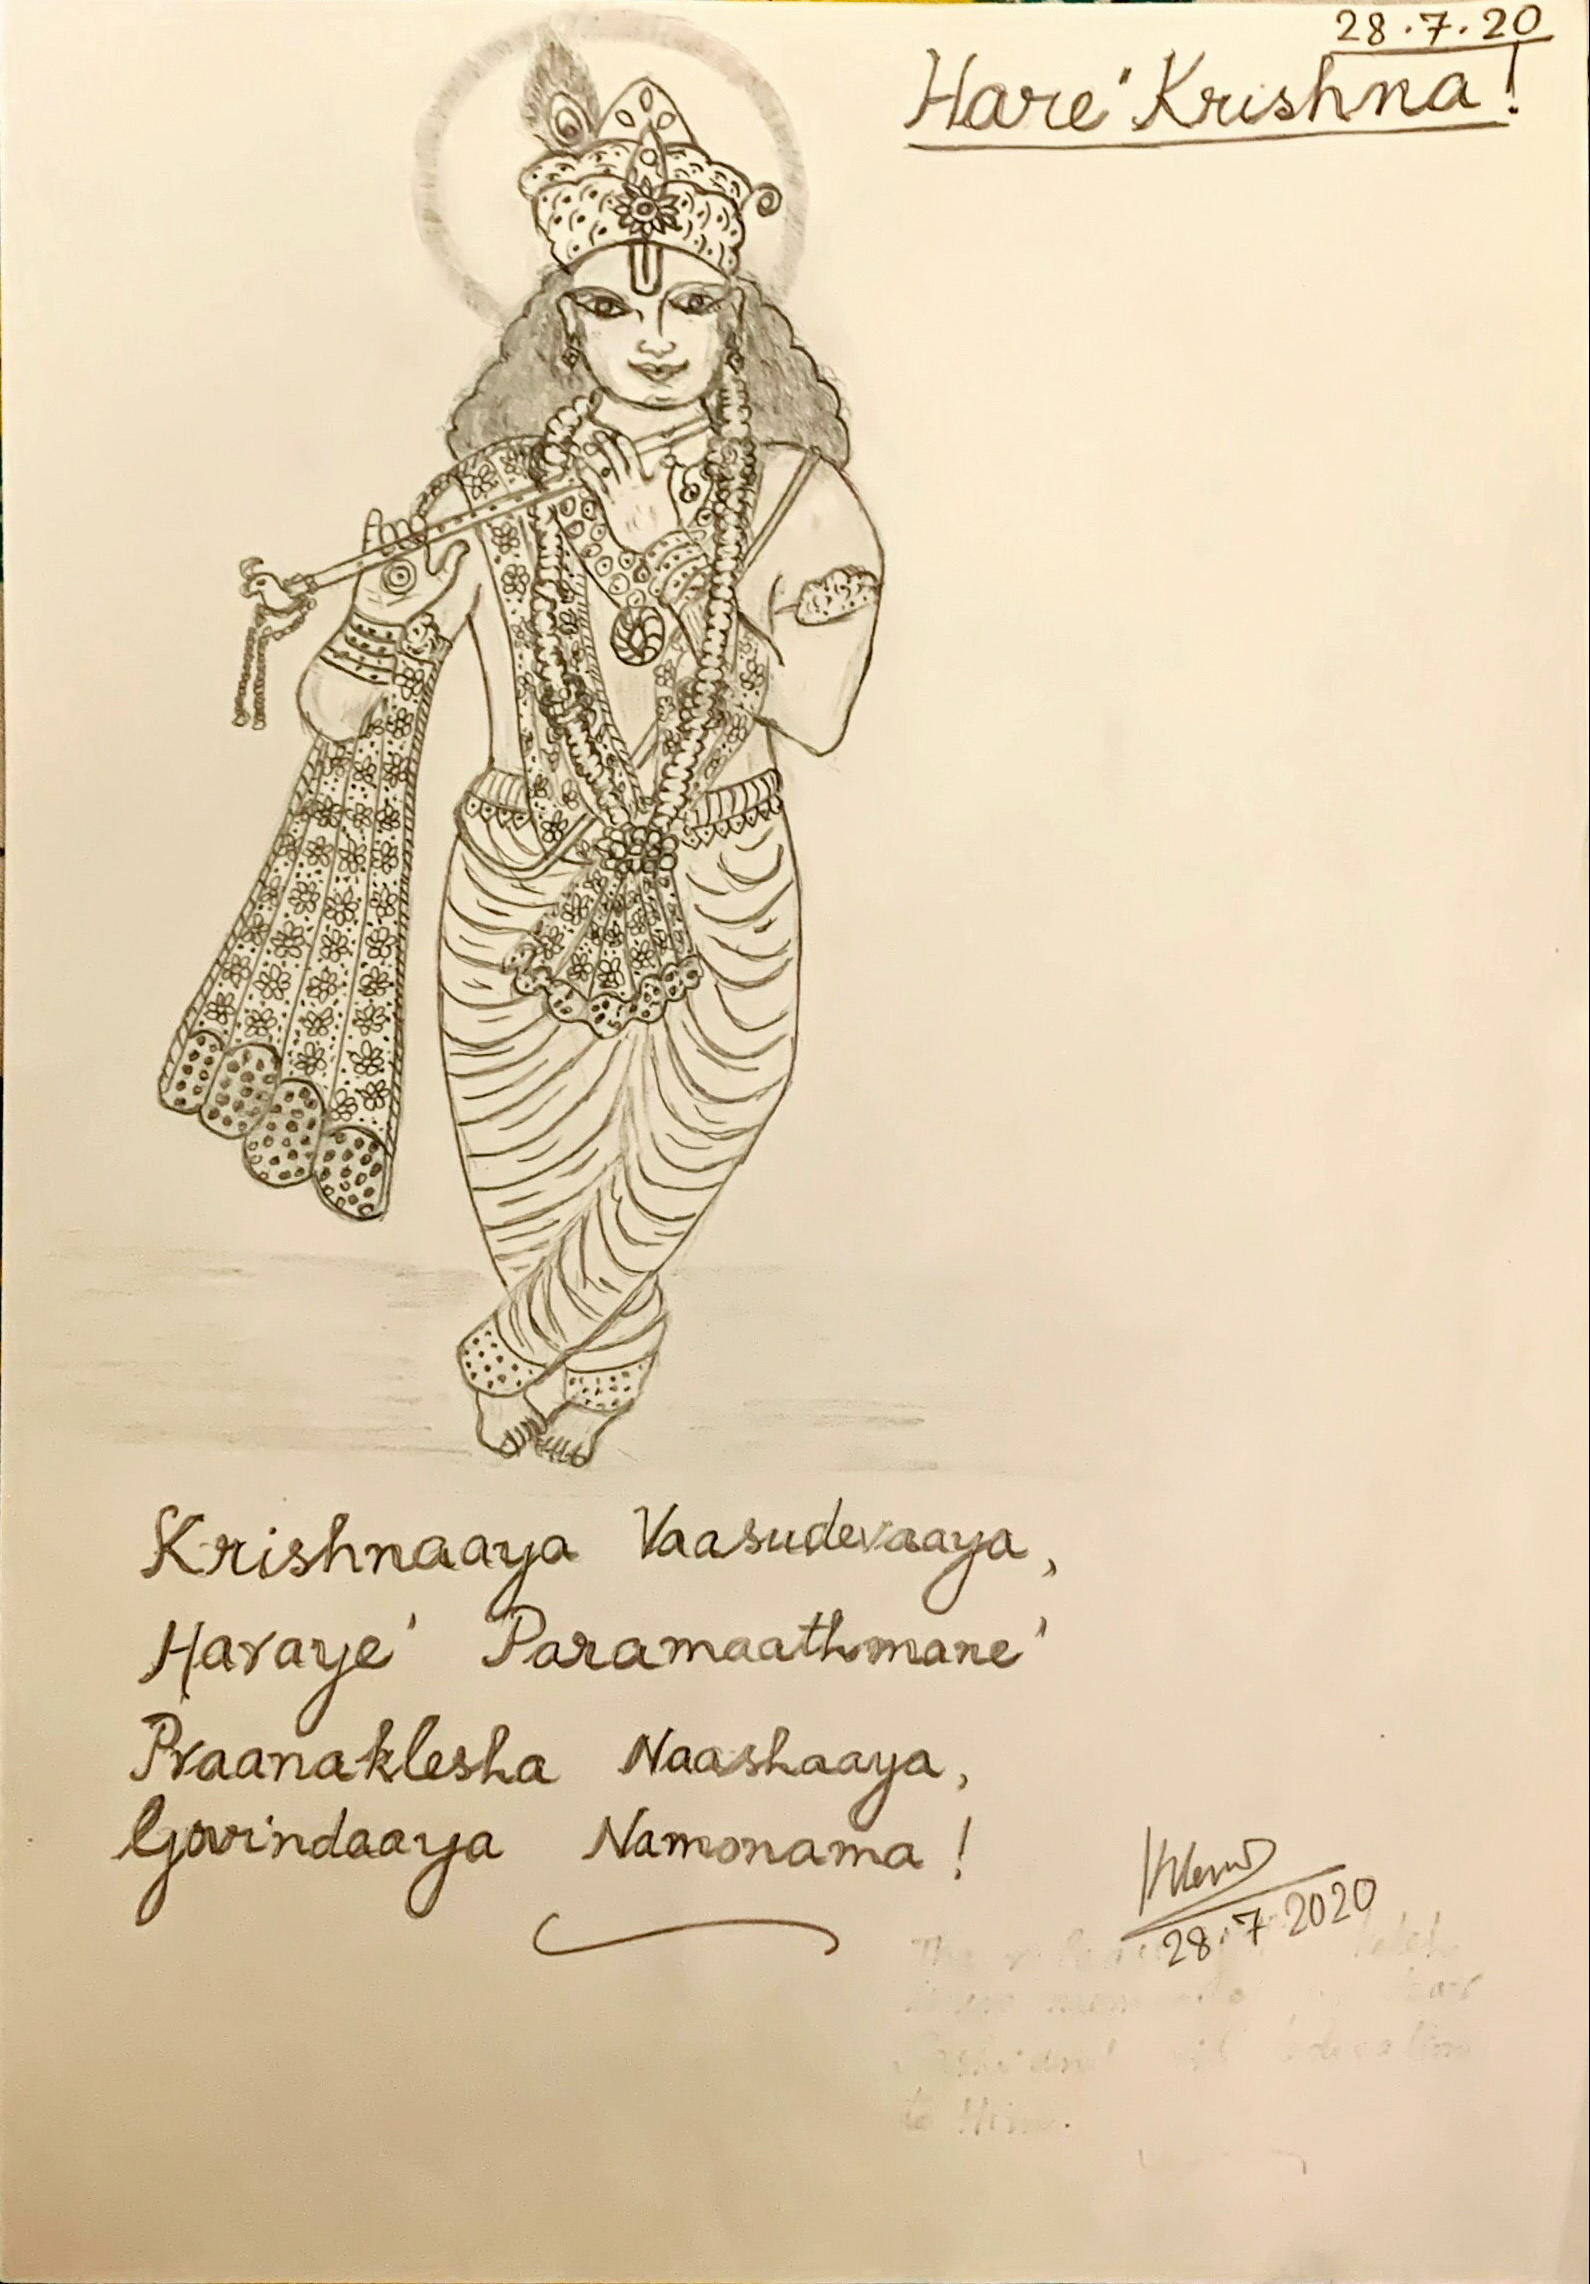 28.7.20
Hare' Krishna!
Krishnaaya Vaasudevaaya,
Haraye' Paramaathmane'
Praanaklesha Naashaaya,
Govindaaya Namonama!
28.7.2020
to Him.